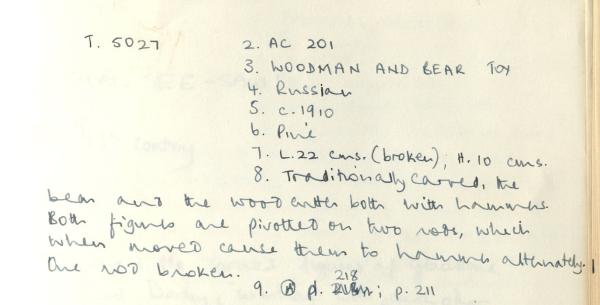 T. 5027 2. AC 201
3. WOODMAN AND BEAR TOY
4. Russian
5. c. 1910
6. Pine
7. L.22 cms. (broken), H. 10 cms.
8. Traditionally carved, the
bear and the woodcutter both with hammers.
Both figures are pivotted on two rods, which
when moved cause them to hammer alternately.
One rod broken.
218
9. p. ; p. 211